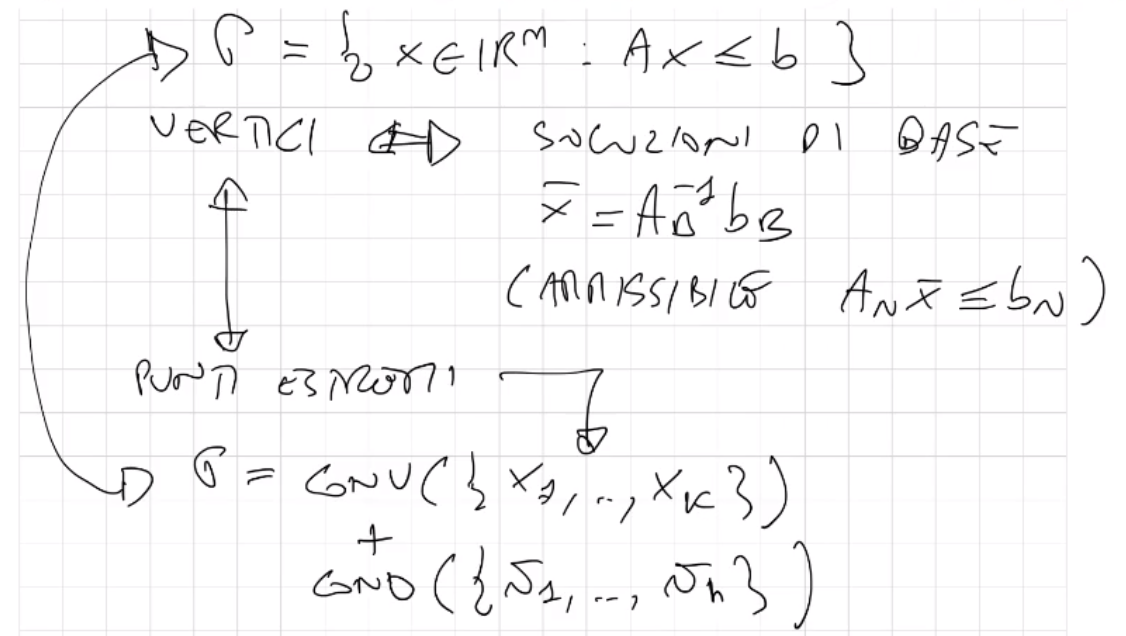 P = { x ∈ ℝⁿ : Ax ≤ b }
VERTICI ⇔ SOLUZIONI DI BASE
x̄ = A_B⁻¹ b_B
(AMMISSIBILE A_N x̄ ≤ b_N)
PUNTI ESTREMI
P = CONV({x₁, .., xₖ})
+
CONO({v₁, .., vₕ})